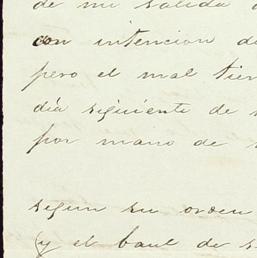 de mi salida
con intencion de
pero el mal tiem
dia siguiente de
por mano de
segun su orden
(y el baul de s